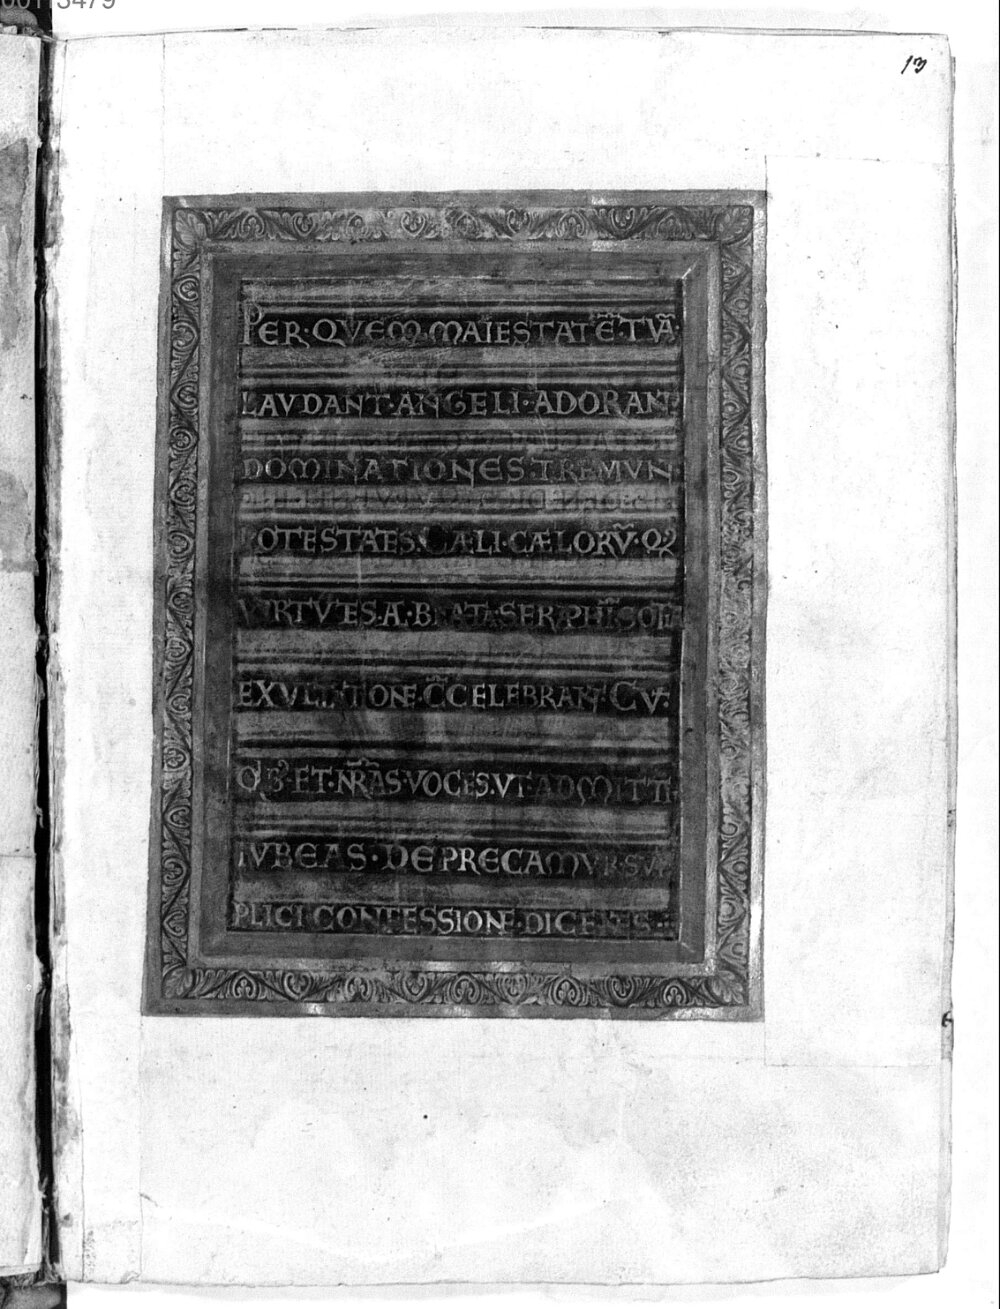 13
PER·QVEM·MAIESTATĒ·TVĀ·
LAVDANT·ANGELI·ADORANT
DOMINATIONES·TREMVN
POTESTATES·CÆLI·CÆLORV̄·Q2
VIRTVTES·A·BEATA·SERAPHĪ·SOCIA
EXVLTATIONE·C̄CELEBRANT·CV̄·
QꝫB·ET·N̄RAS·VOCES·VT·ADMITTI·
IVBEAS·DEPRECAMVR·SVP
PLICI·CONFESSIONE·DICENTES